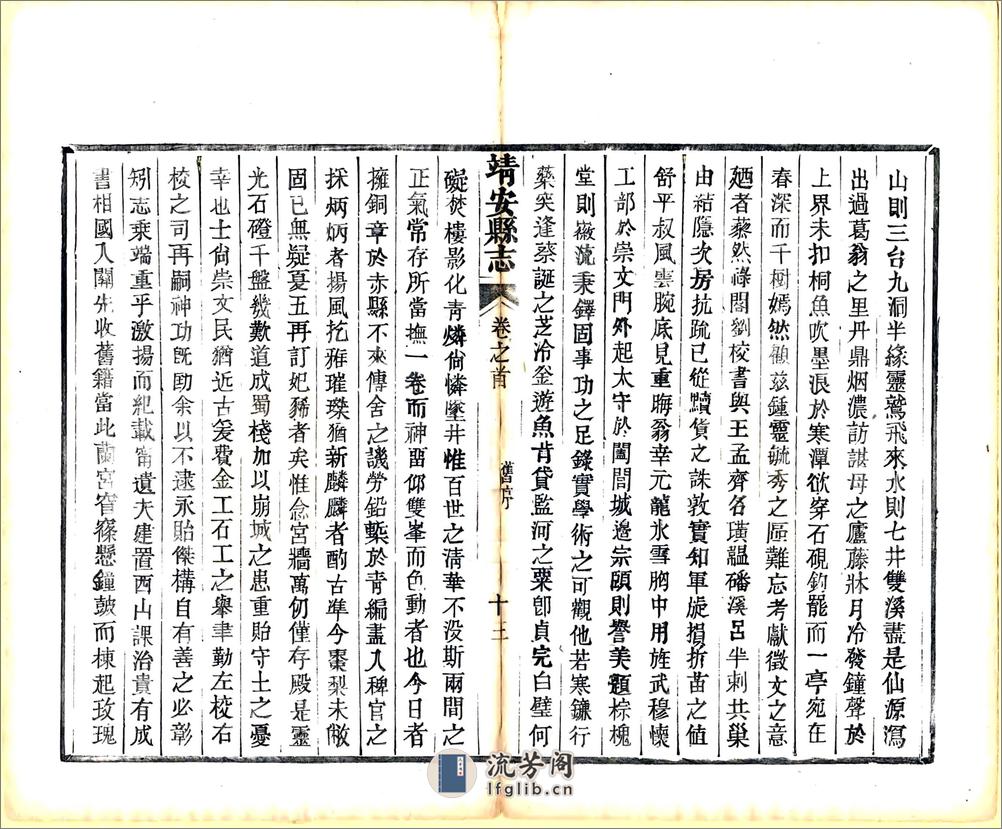 山則三台九洞半緣靈鷲飛來水則七井雙溪盡是仙源瀉
出過葛翁之里丹鼎烟濃訪諶母之廬藤牀月冷發鐘聲於
上界未扣桐魚吹墨浪於寒潭欲穿石硯鈎罷而一亭宛在
春深而千樹嫣然顧兹鍾靈毓秀之區難忘考獻徵文之意
廼者藜然祿閣劉校書與王孟齊名璜韞磻溪呂半刺共巢
由結隱次房抗疏已從黷貨之誅敦實知軍旋損折苗之値
舒平叔風雲腕底見重晦翁幸元龍氷雪胸中用旌武穆懷
工部於崇文門外起太守於闔閭城邊宗頤則譽美題棕槐
堂則徽流秉鐸固事功之足錄實學術之可觀他若寒鐮行
藥突逢蔡誕之芝冷釡遊魚肯貸監河之粟卽貞完白璧何
靖安縣志
卷之首
舊序
十三
礙焚樓影化青燐尙憐墜井惟百世之淸華不没斯兩間之
正氣常存所當撫一卷而神畱仰雙峯而色動者也今日者
擁銅章於赤縣不來傳舍之譏勞鉛槧於青編盡入稗官之
採炳炳者揚風扢雅璀璨猶新麟麟者酌古準今棗梨未敝
固已無疑夏五再訂妃豨者矣惟念宮牆萬仞僅存殿是靈
光石磴千盤幾歎道成蜀棧加以崩城之患重貽守土之憂
幸也士尙崇文民猶近古爰費金工石工之舉聿勤左校右
校之司再嗣神功旣勁余以不逮永貽傑構自有善之必彰
矧志乘端重乎激揚而紀載甯遺夫建置西山課治貴有成
書相國入關先收舊籍當此蘭宮窅窱懸鐘鼓而棟起玫瑰
流芳阁
lfglib.cn